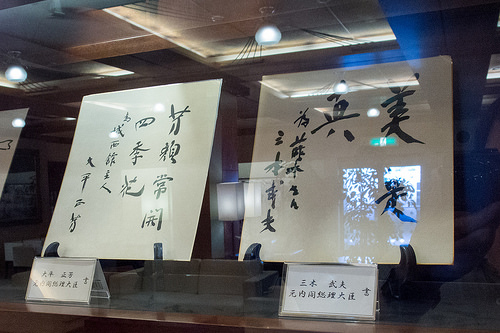 芳顔常開
四季花
為城西館主人
大平正芳
大平 正芳 書
元内閣総理大臣
美
真
三木武夫
三木 武夫 書
元内閣総理大臣